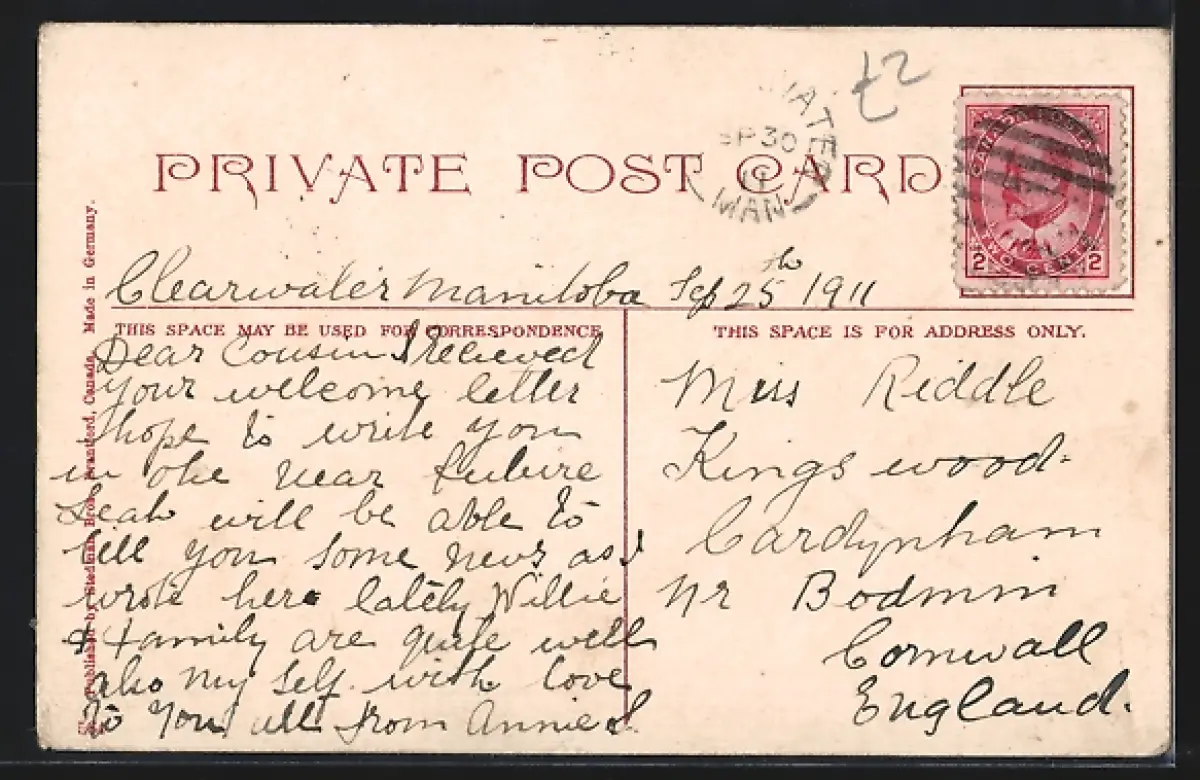 PRIVATE POST CARD
WATER
SP 30
11
MAN
CANADA
TWO CENTS
2 2
Clearwater Manitoba Sep 25th 1911
THIS SPACE MAY BE USED FOR CORRESPONDENCE
Dear Cousin I recieved
your welcome letter
I hope to write you
in the near future
Leah will be able to
tell you some news as I
wrote here lately Willie
& family are quite well
also my self with love
to you all from Annie
THIS SPACE IS FOR ADDRESS ONLY.
Miss Riddle
Kingswood.
Cardynham
Nr Bodmin
Cornwall
England.
Published by Stedman Bros. Brantford, Canada. Made in Germany.